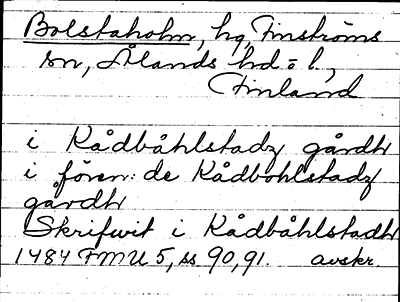 Bolstaholm, hg, Finströms
sn, Ålands hd o l.,
Finland
i Kådbåhlstadz gårdh
i fören: de Kådbohlstadz
gårdh
Skrifwit i Kådbåhlstadh
1484 FMU 5, ss 90, 91. avskr.